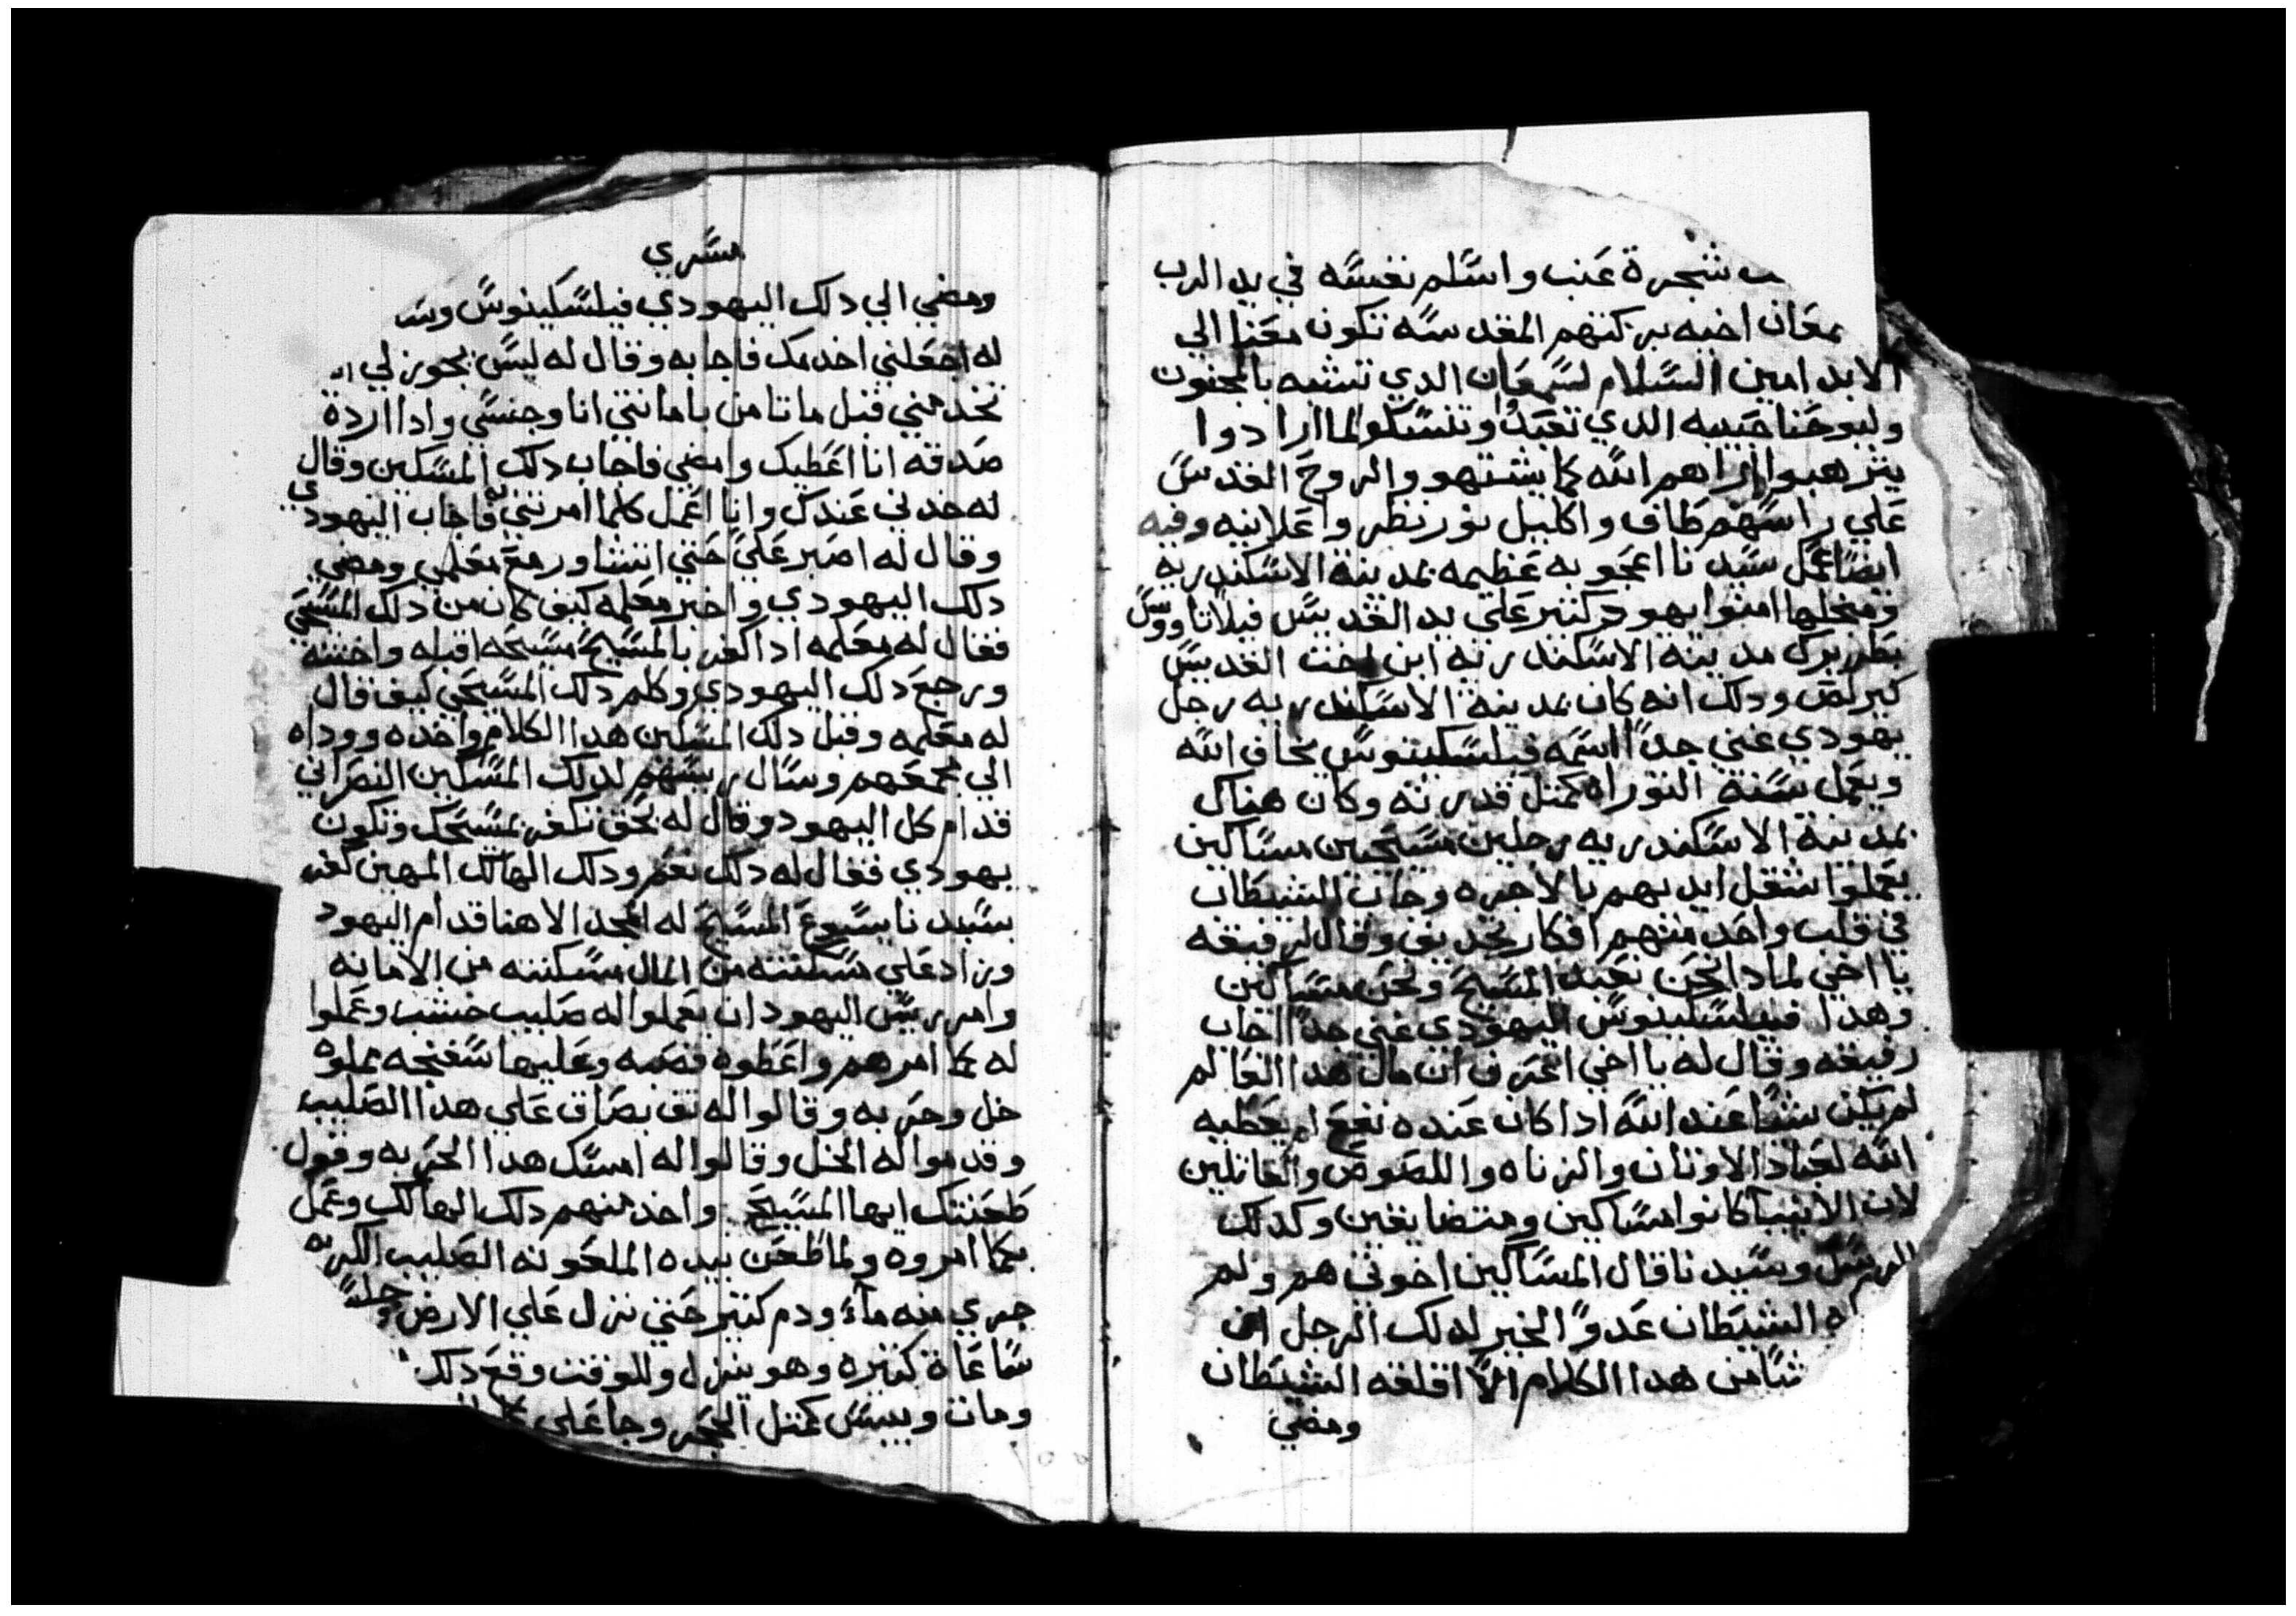 شجرة عنب واسلم نفسه في يد الرب
معان اخيه بركتهم المقدسه تكون معنا الي
الابد امين السلام لسمعان الدي تشبه بالمجنون
وليوحنا حبيبه الدي تعبد وتنسكو لما ارادوا
يترهبوا اراهم الله كما يشتهو والروح القدس
علي راسهم طاف واكليل نور نظر واعلانيه وفيه
ايضا عمل سيدنا اعجوبه عظيمه بمدينة الاسكندريه
ومنجلها امنوا يهود كتير علي يد القديس فيلاتاووس
بطريرك مدينة الاسكندريه ابن اخت القديس
كيرلص ودلك انه كان بمدينة الاسكندريه رجل
يهودي غني جداً اسمه فيلسكينوس يخاف الله
ويعمل بسنة التوراه كمتل قدرته وكان هناك
بمدينة الاسكندريه رجلين مسيحين مساكين
يعملوا شغل ايديهم بالاجره وجاب الشيطان
في قلب واحد منهم افكار تجديف وقال لرفيقه
يا اخي لمادا نحن نعبد المسيح ونحن مساكين
وهدا فيلسكينوس اليهودي غني جداً اجاب
رفيقه وقال له يا اخي اعرف ان مال هدا العالم
لم يكن شيا عند الله ادا كان عنده نفع لم يعطيه
الله لعباد الاوتان والزناه واللصوص والقاتلين
لان الانبيا كانوا مساكين ومتضايقين وكدلك
الرسل وسيدنا قال المساكين اخوتي هم ولم
الشيطان عدو الخير لدلك الرجل ان
شيا من هدا الكلام الا اقلقه الشيطان
ومضي
سري
ومضي الي دلك اليهودي فيلسكينوس وس
له اجعلني اخدمك فاجابه وقال له ليس يجوز لي
تخدمني قبل ماتامن بامانتي انا وجنسي وادا اردة
صدقه انا اعطيك وامضي فاجاب دلك المسكين وقال
له خدني عندك وانا اعمل كلما امرتني به فاجاب اليهودي
وقال له اصبر علي حتي اتشاور مع معلمي ومضي
دلك اليهودي واخبر معلمه كيف كان من دلك المسيحي
فقال له معلمه ادا كفر بالمسيح مسيحه اقبله واختنه
ورجع دلك اليهودي وكلم دلك المسيحي كيف قال
له معلمه وقبل دلك المسكين هدا الكلام واخده ووداه
الي مجمعهم وسال ريسهم لدلك المسكين النصراني
قدام كل اليهود وقال له بحق تكفر بمسيحك وتكون
يهودي فقال له دلك نعم ودلك الهالك المهين كفر
بسيدنا يسوع المسيح له المجد الاهنا قدام اليهود
وزاد علي مسكنته من المال مسكنته من الامانه
وامر ريس اليهود ان يعملوا له صليب خشب وعملوا
له كما امرهم واعطوه قصبه وعليها سفنجه مملوه
خل وحربه وقالوا له تف بصاق علي هدا الصليب
وقدموا له الخل وقالوا له امسك هدا الحربه وقول
طعنتك ايها المسيح واخد منهم دلك الهالك وعمل
بكما امروه ولما طعن بيده الملعونه الصليب الكريم
جري منه ماء ودم كتير حتي نزل علي الارض وجلس
ساعاة كتيره وهو ينزل وللوقت وقع دلك
ومات ويبس كمتل الحجر وجا علي